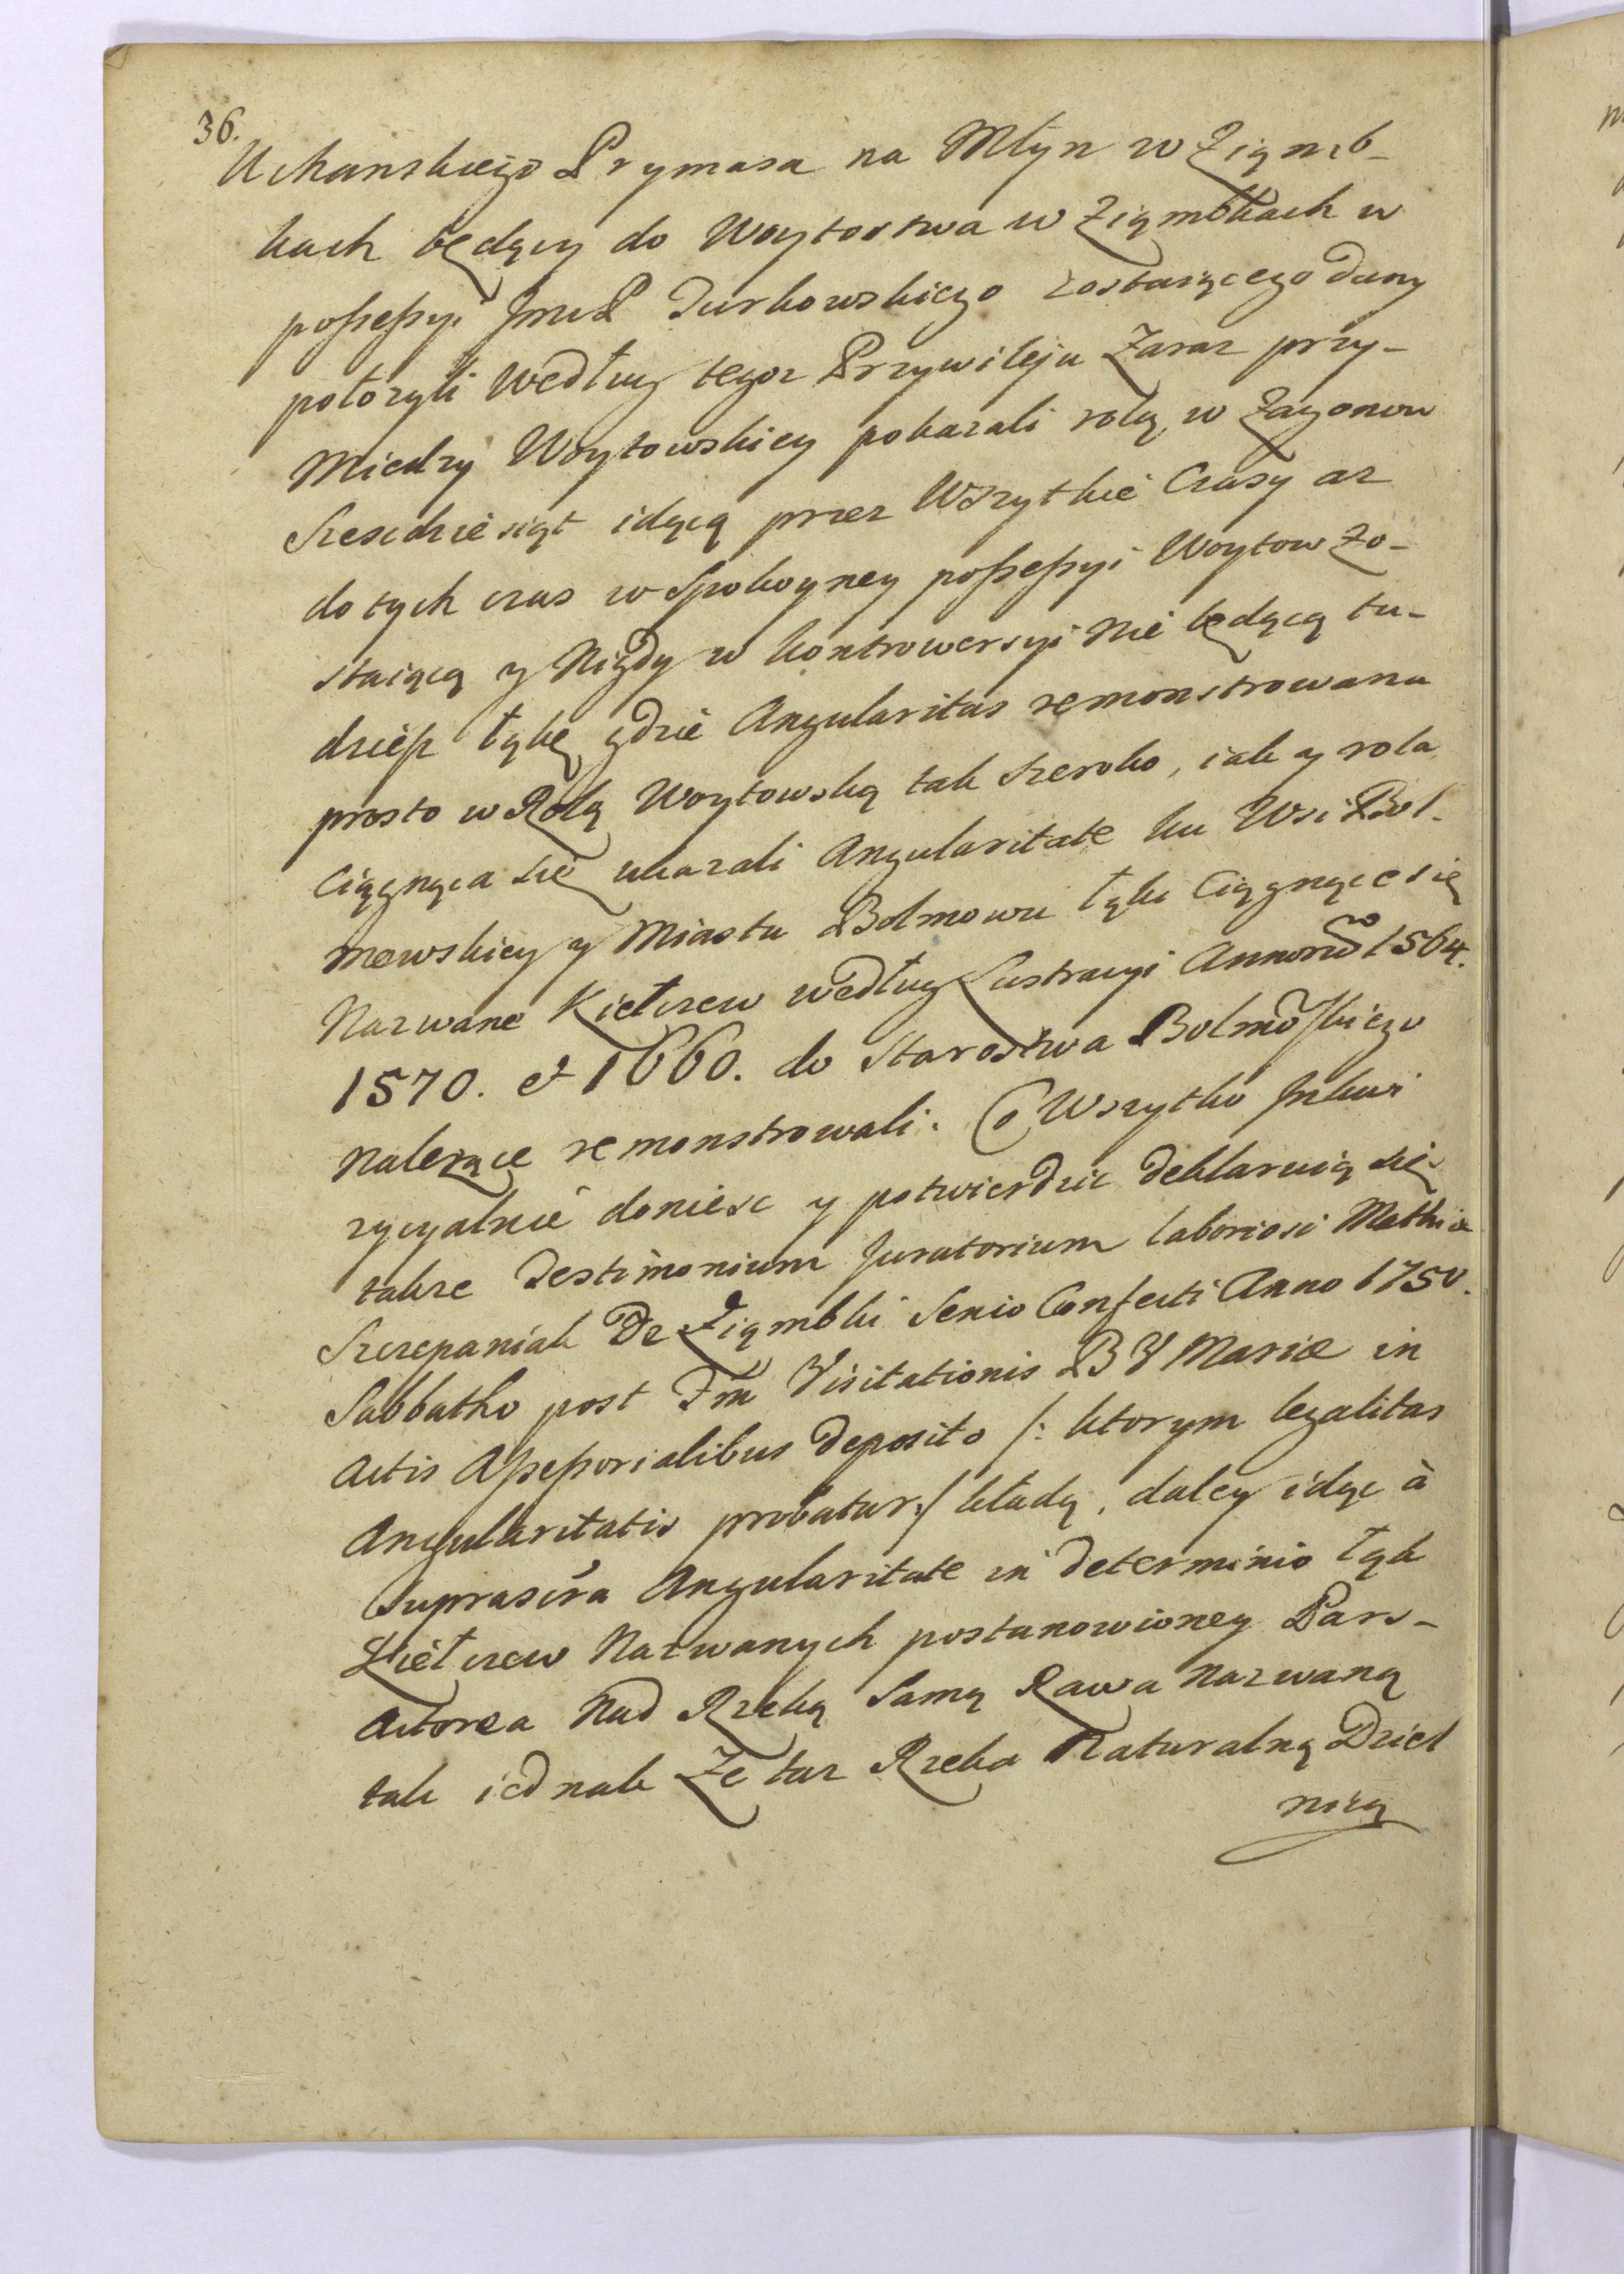 36.
Uchanskiego Prymasa na Młyn w Ziąmb-
kach będący do Woytostwa w Ziąmbkach w
possessyi JmcP Turkowskiego zostaiącego dany
położyli według tegoz Przywileju Zaraz przy-
Miedzy Woytowskiey pokazali rolą w Zagonow
Szescdziesiąt idącą przez Wszytkie Czasy az
do tych czas w Spokoyney possessyi Woytow Zo-
staiącą y Nigdy w kontrowersyi Nie będącą tu-
dziesz łąkę gdzie Angularitas remonstrowana
prosto w Rolą Woytowską tak szeroko, iak y rola
Ciągnąca się ukazali Angularitate ku Wsi Bol-
mowskiey y Miastu Bolmowu łąki Ciągnące się
Nazwane Kiełczew według Lustracyi Annorũ 1564.
1570. et 1660. do Starostwa Bolmõskiego
Nalezące remonstrowali. Co Wszytko Inkwi
zycyalnie doniesc y potwierdzic deklaruią się
takze Testimonium Juratorium laboriosi Mathiæ
Szczepaniak De Ziąmbki Senio Confecti Anno 1750.
Sabbatho post Fm Visitationis BV Mariæ in
Actis Assessorialibus Deposito /: ktorym legalitas
Angularitatis probatur :/ kładą, daley idąc à
Suprascra Angularitate in determinio łąk
Kiełczew Nazwanych postanowioney Pars-
Actorea Nad Rzeką Samą Rawa Nazwaną
tak iednak Ze taz Rzeka Naturalną Dziel
nicą